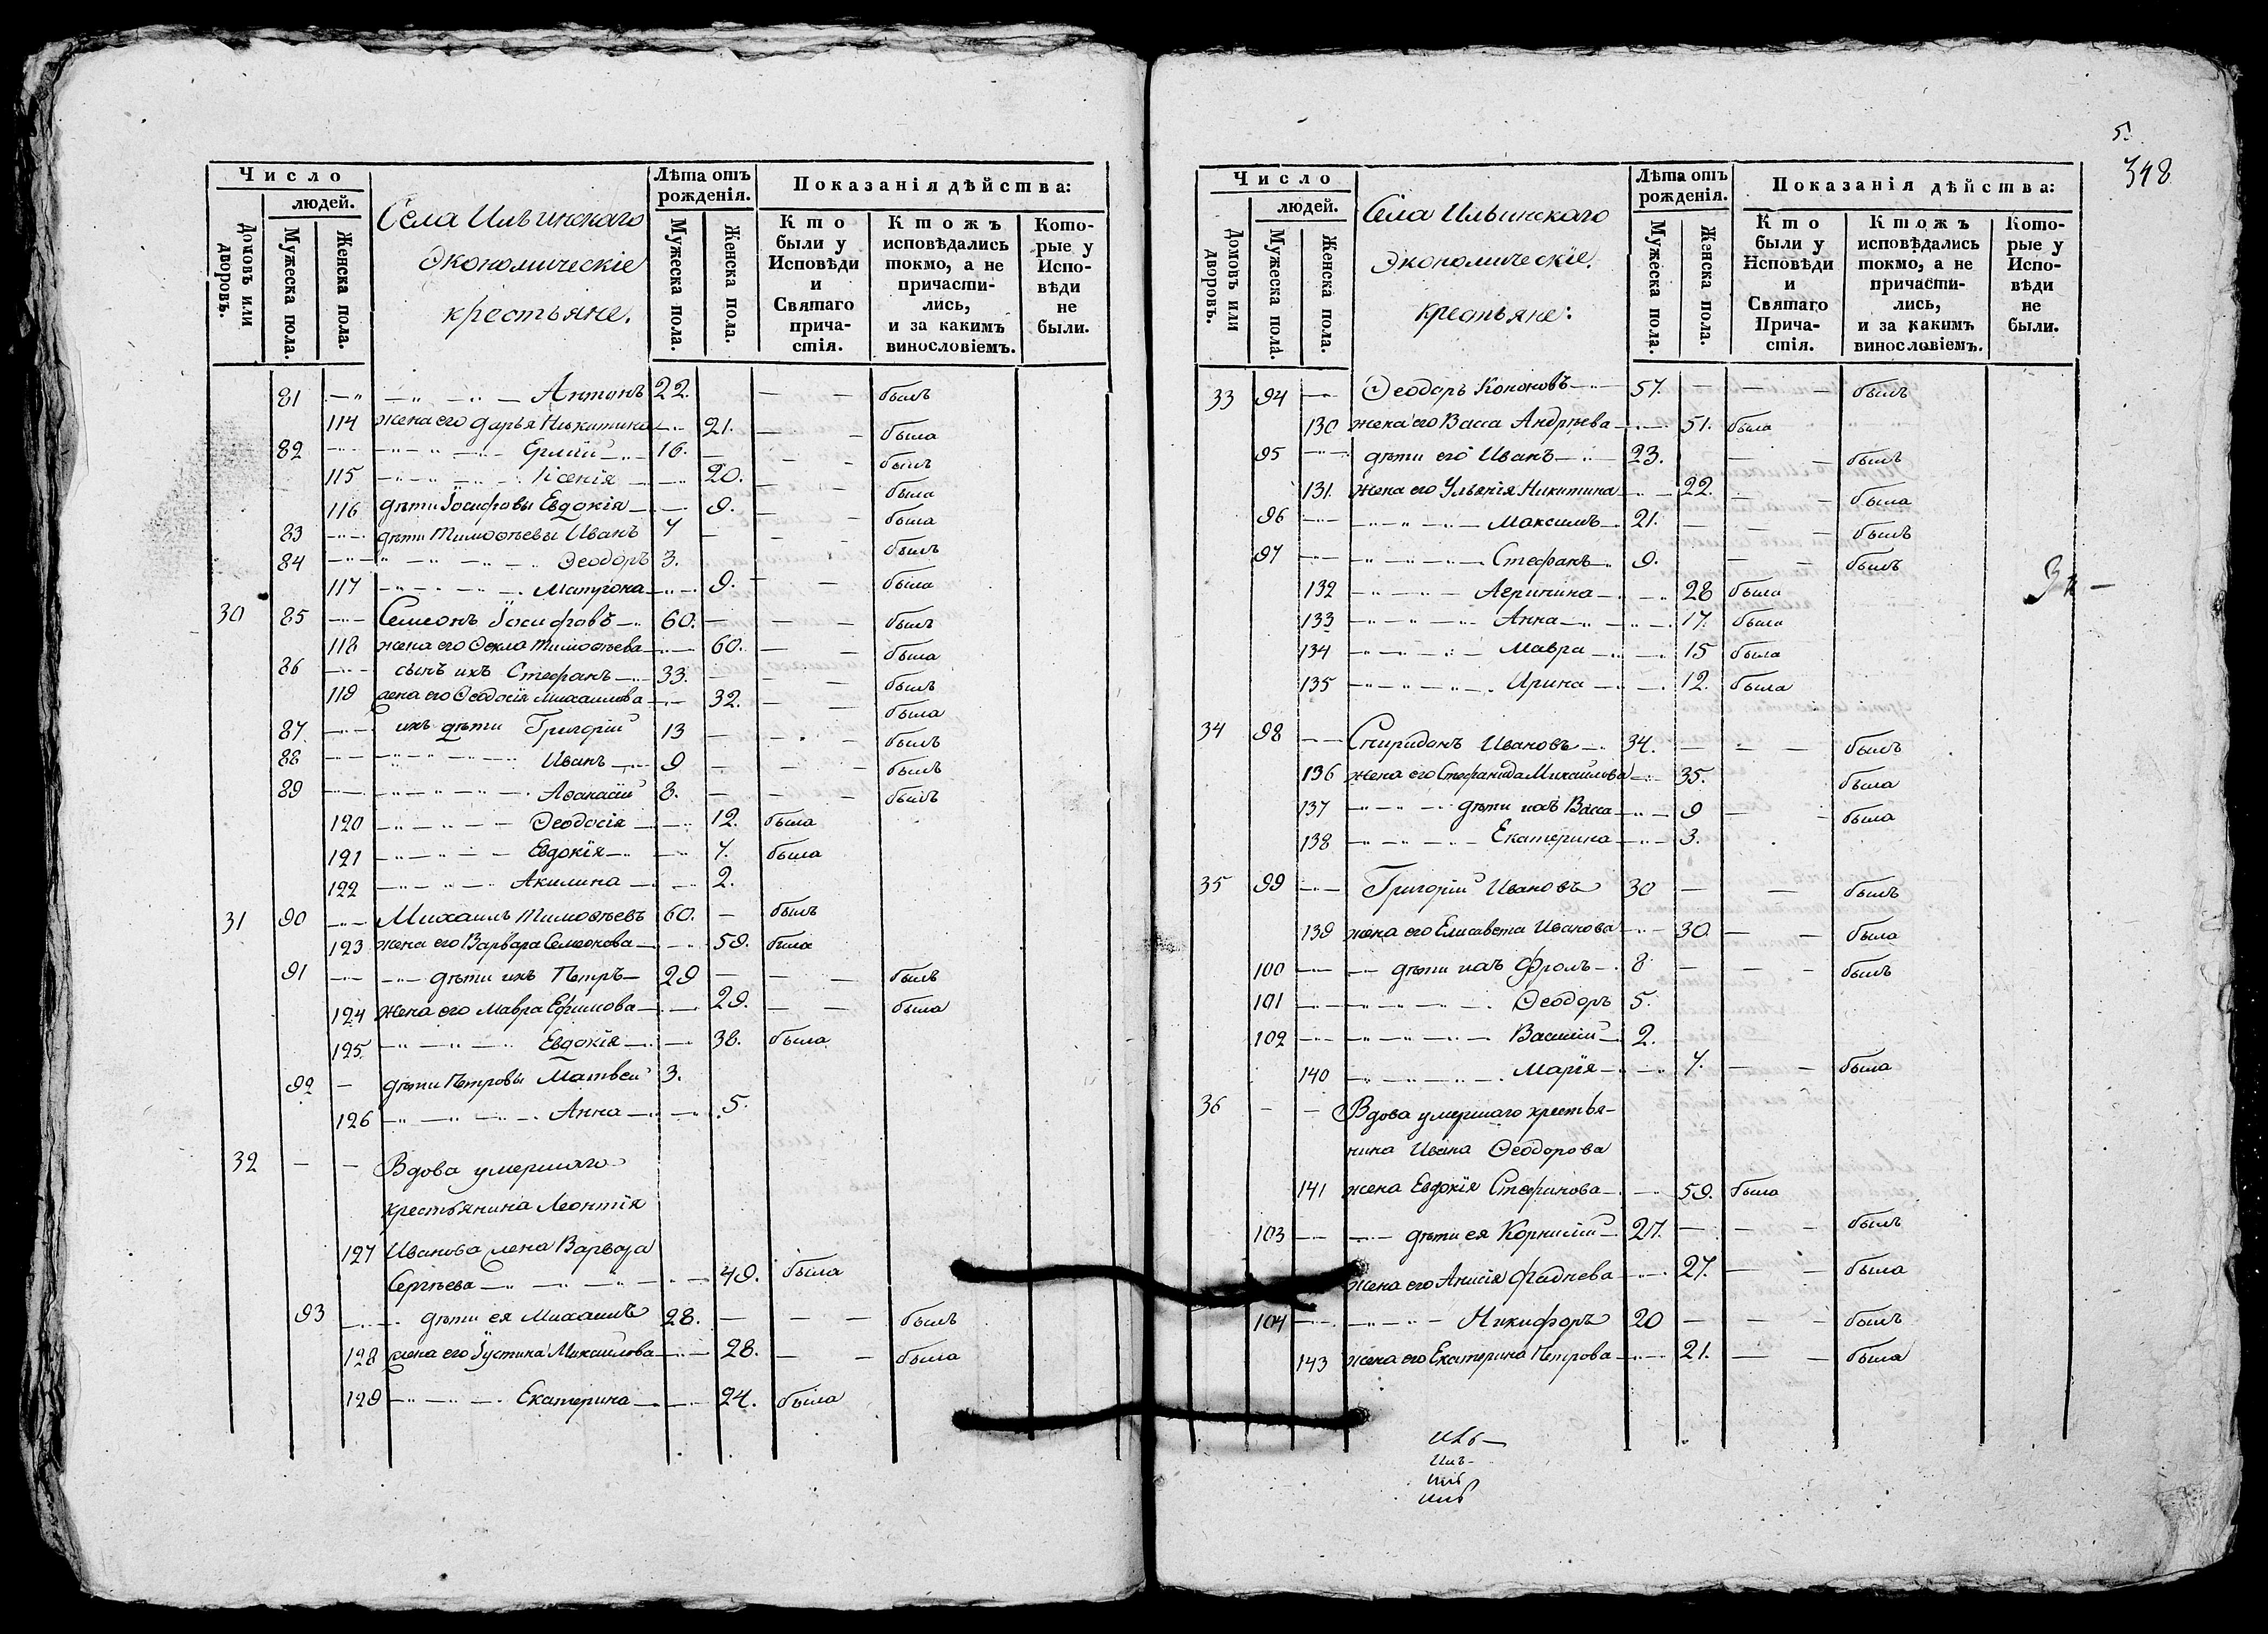 Число
людей.
Домовъ или дворовъ.
Мужеска пола.
Женска пола.
Села Ильинскаго
Экономическіе
крестьяне.
Лѣта отъ рожденія.
Мужеска пола.
Женска пола.
Показанія дѣйства:
Кто были у Исповѣди и Святаго причастія.
Ктожъ исповѣдались токмо, а не причастились, и за какимъ винословіемъ.
Которые у Исповѣди не были.
81 — Антонъ 22. — — былъ
114 жена его Дарья Никитина — 21. — — была
82 — Ермій — 16. — — былъ
115 — Ксенія — 20. — — была
116 дѣти Іосифовы Евдокія — 9. — — была
83 — дѣти Тимоѳѣевы Иванъ 7 — — — былъ
84 — Ѳеодоръ 3.
117 — Матрона — 9. — — была
30 85 — Семіонъ Іосифовъ — 60. — — — былъ
118 жена его Ѳекла Тимоѳѣева — 60. — — была
86 — сынъ ихъ Стефанъ — 33. — — — былъ
119 жена его Ѳеодосія Михаилова — 32. — — была
87. — ихъ дѣти Григорій 13 — — — былъ
88 — Иванъ — 9 — — — былъ
89 — Аѳанасій 8. — — — былъ
120 — Ѳеодосія — 12. была
121 — Евдокія — 7. была
122 — Акилина — 2.
31 90 — Михаилъ Тимоѳѣевъ 60. — былъ
123 жена его Варвара Семіонова — 59. была
91 — дѣти ихъ Петръ — 29 — — — былъ
124 жена его Мавра Ефимова — 29. — — была
125 — Евдокія — 38. была
92 — дѣти Петровы Матвей 3.
126 — Анна — 5.
32 — — Вдова умершаго
крестьянина Леонтія
127 Иванова жена Варвара
Сергѣева — 49. была
93 — дѣти ея Михаилъ 28. — — — былъ
128 жена его Іустина Михаилова — 28. — — была
129 — Екатерина — 24. была
5.
348
Число
людей.
Домовъ или дворовъ.
Мужеска пола.
Женска пола.
Села Ильинскаго
Экономическіе.
крестьяне:
Лѣта отъ рожденія.
Мужеска пола.
Женска пола.
Показанія дѣйства:
Кто были у Исповѣди и Святаго Причастія.
Ктожъ исповѣдались токмо, а не причастились, и за какимъ винословіемъ.
Которые у Исповѣди не были.
33 94 — Ѳеодоръ Кононовъ — 57. — — — былъ
130 жена его Васса Андрѣева — 51. была
95 — дѣти его Иванъ — 23. — — былъ
131. жена его Ульянія Никитина — 22. — — была
96 — Максимъ — 21. — — былъ
97 — Стефанъ — 9. — — былъ
132 — Агрипина — 28 была
133 — Анна — 17. была
134 — Мавра — 15 была
135 — Ирина — 12. была
34 98 — Спиридонъ Ивановъ — 34. — — — былъ
136 жена его Стефанида Михаилова — 35. была
137 — дѣти ихъ Васса — 9 — — была
138 — Екатерина — 3.
35 99 — Григорій Ивановъ 30 — — былъ
139 жена его Елисавета Иванова — 30. — — была
100 — дѣти ихъ Фролъ — 8 — — — былъ
101 — Ѳеодоръ 5.
102 — Василій — 2.
140 — Марія — 7. — — была
36 — — Вдова умершаго крестья-
нина Ивана Ѳеодорова
141 жена Евдокія Стефанова — 59. была
103 — дѣти ея Корнилій — 27. — — — былъ
жена его Анисія Фадѣева — 27. — — была
104 — Никифоръ 20 — — — былъ
143 жена его Екатерина Петрова — 21. — — была